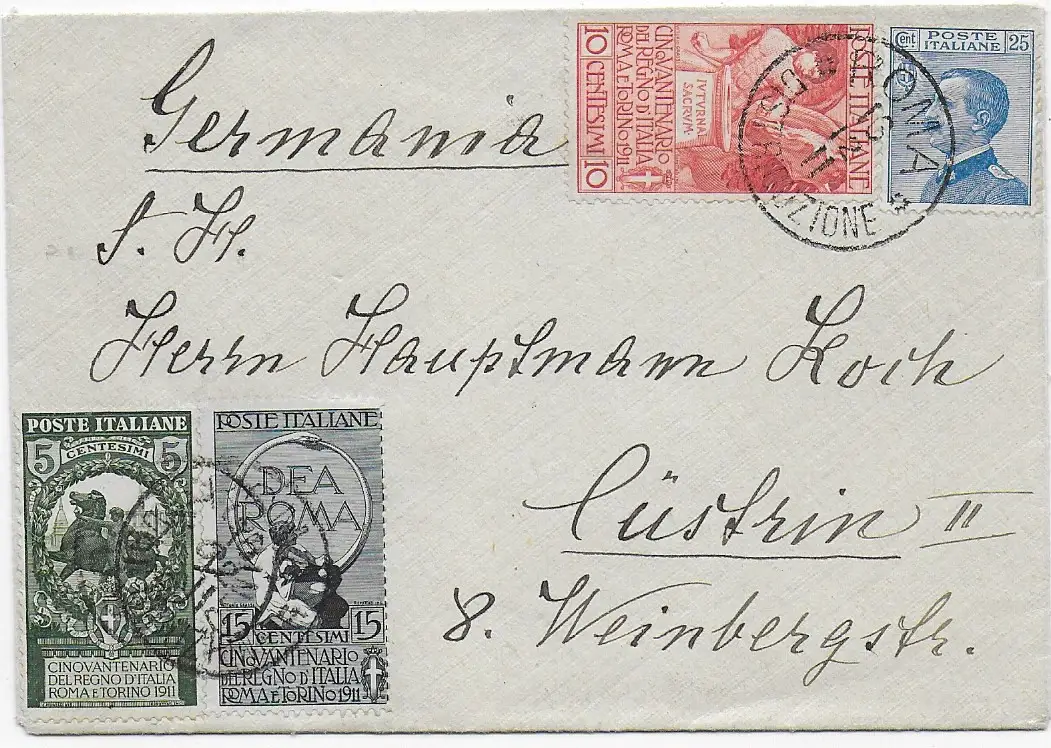 Germania
S. H.
Herrn Hauptmann Koch
Cüstrin II
8. Weinbergstr.
10 CENTESIMI 10
CINQVANTENARIO
DEL REGNO D'ITALIA
ROMA E TORINO 1911
IVTVRNAI
SACRVM
POSTE ITALIANE
Cent POSTE 25
ITALIANE
ROMA
DISTRIBUZIONE
POSTE ITALIANE
5 CENTESIMI 5
CINQVANTENARIO
DEL REGNO D'ITALIA
ROMA E TORINO 1911
POSTE ITALIANE
DEA
ROMA
15 CENTESIMI 15
CINQVANTENARIO
DEL REGNO D'ITALIA
ROMA E TORINO 1911